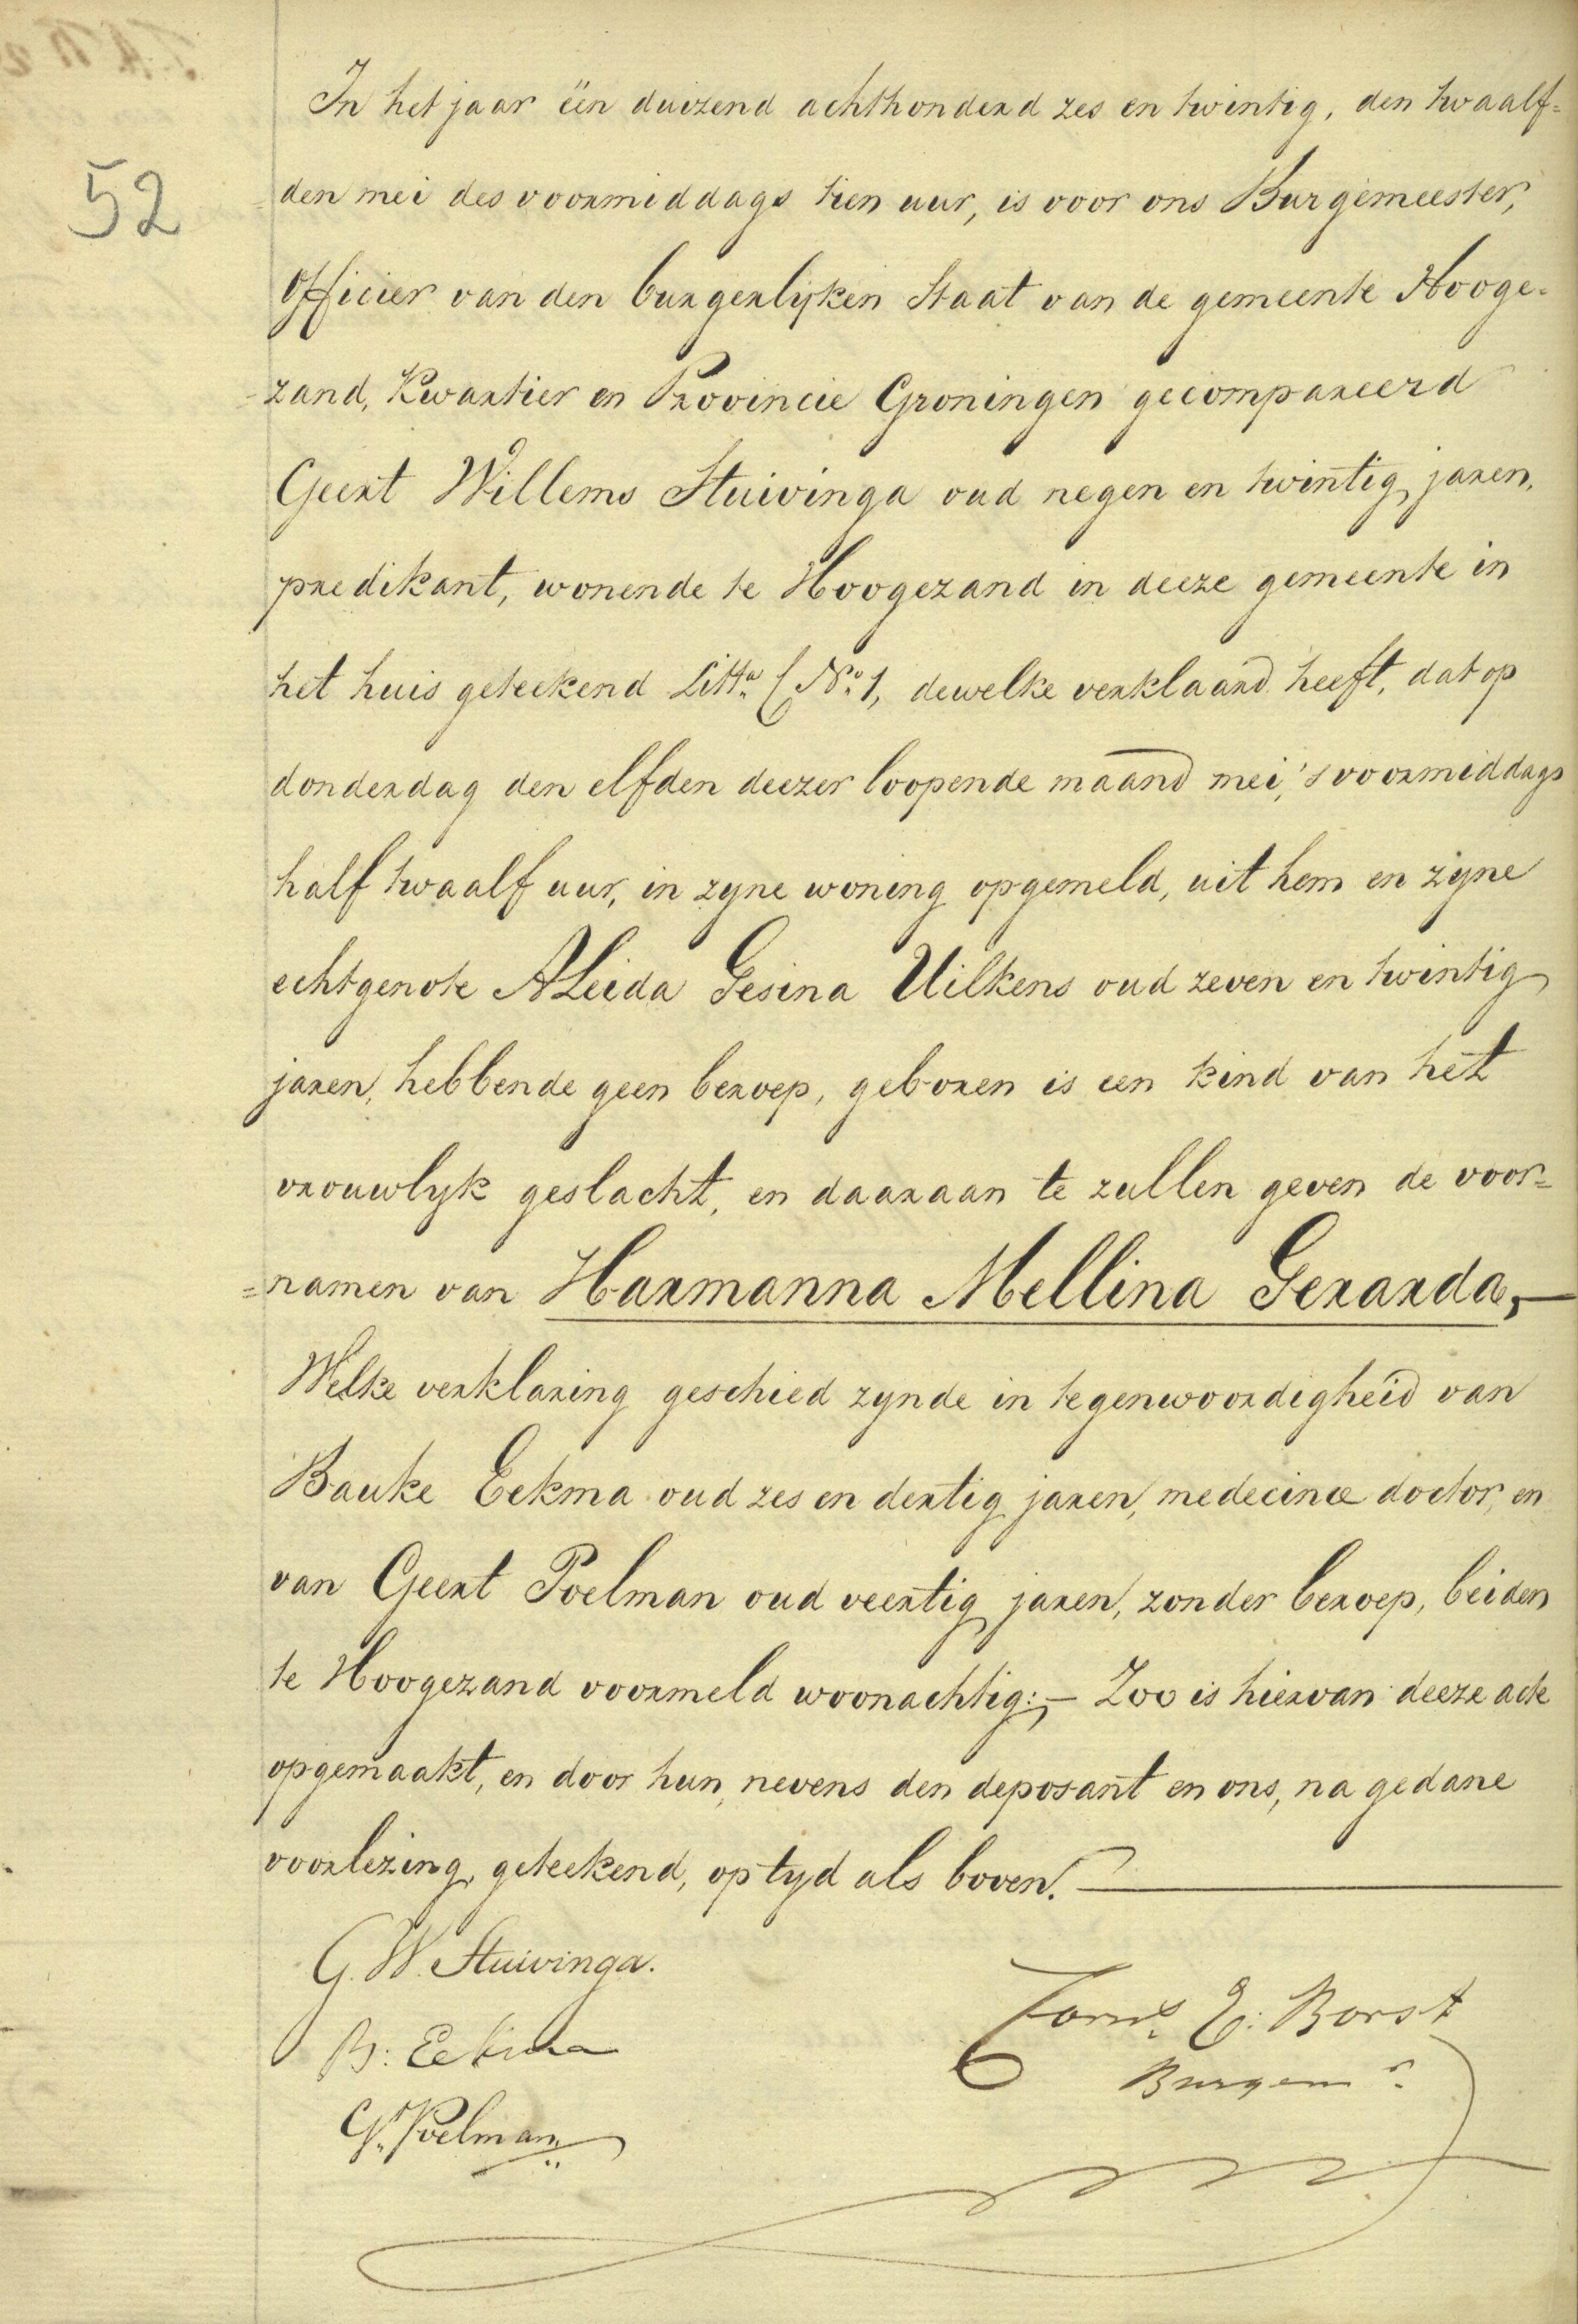 In het jaar één duizend achthonderd zes en twintig, den twaalf=
52
den mei des voormiddags tien uur, is voor ons Burgemeester,
Officier van den burgerlyken Staat van de gemeente Hooge=
zand, Kwartier en Provincie Groningen gecompareerd
Geert Willems Stuivinga oud negen en twintig jaren,
predikant, wonende te Hoogezand in deeze gemeente in
het huis geteekend Litta C No 1, dewelke verklaard heeft, dat op
donderdag den elfden deezer loopende maand mei, 's voormiddags
half twaalf uur, in zyne woning opgemeld, uit hem en zyne
echtgenote ALeida Gesina Uilkens oud zeven en twintig
jaren, hebbende geen beroep, geboren is een kind van het
vrouwlyk geslacht, en daaraan te zullen geven de voor=
=namen van Harmanna Mellina Gerarda,—
Welke verklaring geschied zynde in tegenwoordigheid van
Bauke Eekma oud zes en dertig jaren, medecinæ doctor, en
van Geert Poelman oud veertig jaren, zonder beroep, beiden
te Hoogezand voormeld woonachtig;— Zoo is hiervan deeze acte
opgemaakt, en door hun, nevens den deposant en ons, na gedane
voorlezing, geteekend, op tyd als boven.—
G. W. Stuivinga.
B: Eekma
Gt. Poelman
E: Borst
Burgemr.